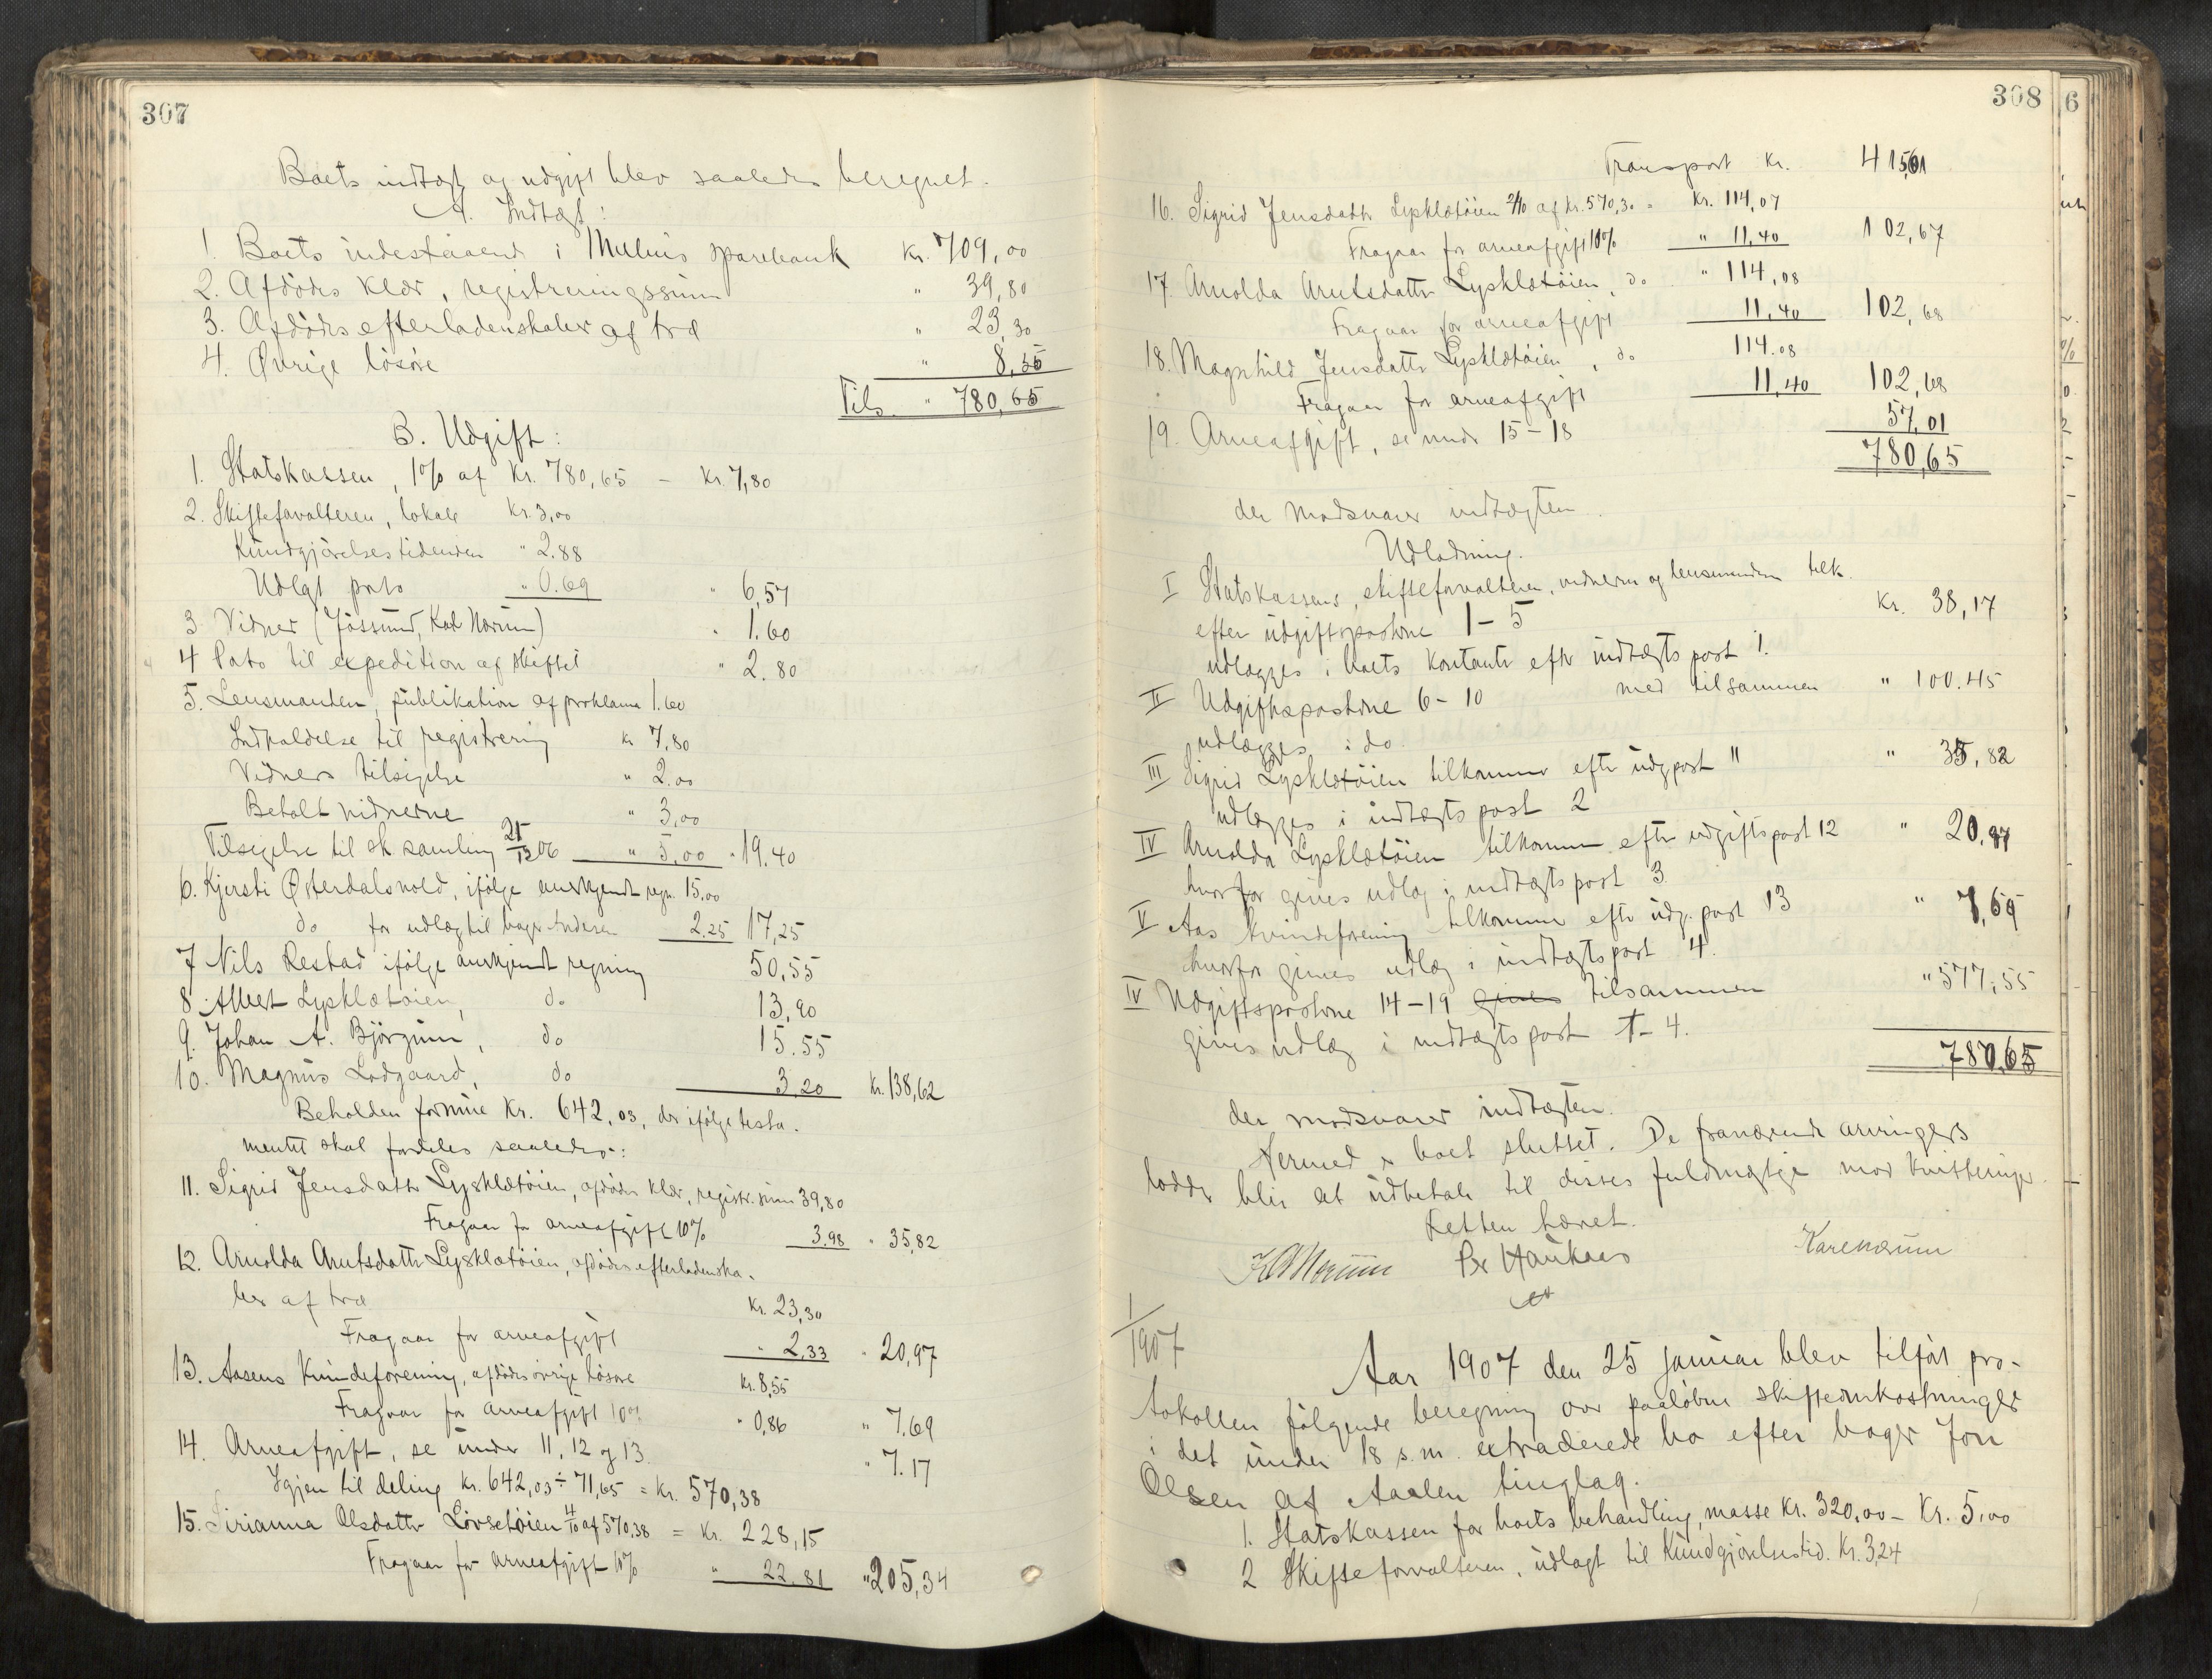 307
Boets indtægt og udgift blev saaledes beregnet.
A. Indtægt:
1. Boets indestaaende i Melhus sparebank Kr. 709,00
2. Afdödes klær, registreringssum " 39,80
3. Afdödes efterladenskaber af træ " 23,30
4. Øvrige lösöre " 8,55
Tils. " 780,65
B. Udgift:
1. Statskassen, 1% af Kr. 780,65 – Kr. 7,80
2. Skifteforvalteren, lokale Kr. 3,00
Kundgjörelsestidenden " 2.88
Udlagt porto " 0.69 " 6,57
3 Vidner (Jössund, Karl Nærum) " 1.60
4 Porto til expedition af skiftet " 2.80
5. Lensmanden, publikation af proklama 1.60
Indkaldelse til registrering Kr 7,80
Vidners tilsigelse " 2.00
Betalt vidnerne " 3,00
Tilsigelse til sk. samling 21/12 06 " 5,00 " 19.40
6. Kjersti Østerdalsvold, ifölge anerkjendt regn. 15,00
do for udlæg til bager Andersen 2.25 17,25
7 Nils Restad ifölge anerkjendt regning 50,55
8. Albert Lysklætöien, do 13,90
9. Johan A. Björgum, do 15.55
10. Magnus Lodgaard, do 3,20 Kr. 138,62
Beholden formue Kr. 642,03, der ifölge testa-
mentet skal fordeles saaledes:
11. Sigrid Jensdatter Lysklætöien, afdödes klær, registr.sum 39,80
Fragaar for arveafgift 10% 3.98 " 35,82
12. Arnolda Arntsdatter Lysklætöien, afdödes efterladenska-
ber af træ Kr. 23,30
Fragaar for arveafgift " 2,33 " 20,97
13. Aasens Kvindeforening, afdödes övrige lösöre Kr. 8,55
Fragaar for arveafgift 10% " 0,86 " 7.69
14. Arveafgift, se under 11, 12 og 13 " 7.17
Igjen til deling Kr. 642,03 ÷ 71,65 = Kr. 570,38
15. Sirianna Olsdatter Lövsetöien 4/10 af 570,38 = Kr. 228,15
Fragaar for arveafgift 10% " 22,81 " 205,34
308
6
Transport Kr. 415,61
16. Sigrid Jensdatter Lysklætöien 2/10 af Kr. 570,30 = Kr. 114,07
Fragaar for arveafgift 10% " 11,40 102,67
17. Arnolda Arntsdatter Lysklætöien, do " 114,08
Fragaar for arveafgift 11,40 102,68
18. Magnhild Jensdatter Lysklætöien, do 114.08
Fragaar for arveafgift 11,40 102,68
19. Arveafgift, se under 15–18 57,01
780,65
der modsvarer indtægten.
Udlodning.
I Statskassens, skifteforvalteren, vidnerne og lensmanden tilk.
efter udgiftsposterne 1–5 Kr. 38,17
udlægges i boets kontanter efter indtægtspost 1.
II Udgiftsposterne 6–10 med tilsammen " 100.45
udlægges i do.
III Sigrid Lysklætöien tilkommer efter udg.post 11 " 35,82
udlægges i indtægtspost 2
IV Arnolda Lysklætöien tilkommer efter udgiftspost 12 " 20,97
hvorfor gives udlæg i indtægtspost 3
V Aas Kvindeforening tilkommer efter udg. post 13 " 7,69
hvorfor gives udlæg i indtægtspost 4.
IV Udgiftsposterne 14–19 gives tilsammen " 577,55
gives udlæg i indtægtspost 1–4.
780,65
der modsvarer indtægten.
Hermed er boet sluttet. De fraværende arvingers
lodder blir at udbetale til disses fuldmægtige mod kvittering.
Retten hævet.
Per Haukaas
1/1907
Aar 1907 den 25 januar blev tilfört pro-
tokollen fölgende beregning over paalöbne skifteomkostninger
i det under 18 s.m. extraderede bo efter bager Jon
Olsen af Aalen tinglag.
1. Statskassen for boets behandling, masse Kr. 320,00 – Kr. 5,00
2 Skifteforvalteren, udlagt til Kundgjörelsestid. Kr. 3,24